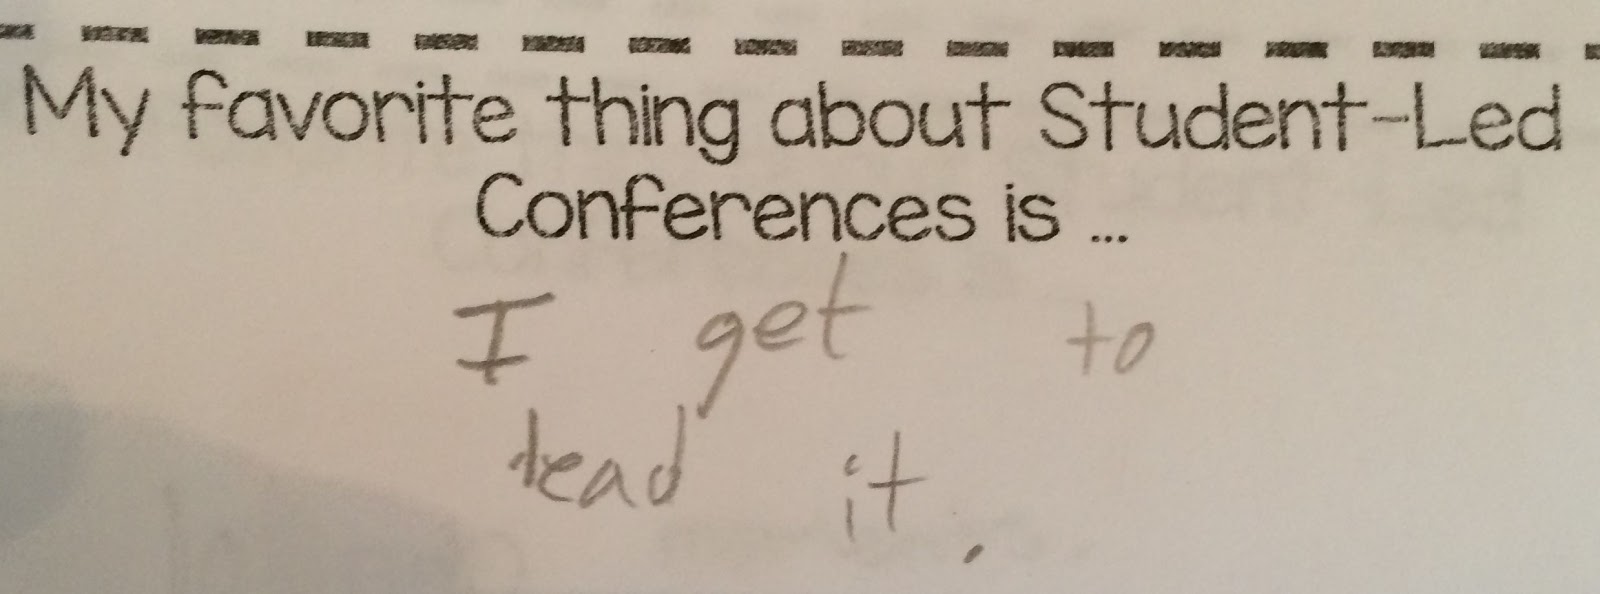 My favorite thing about Student-Led
Conferences is ...
I get to
lead it.